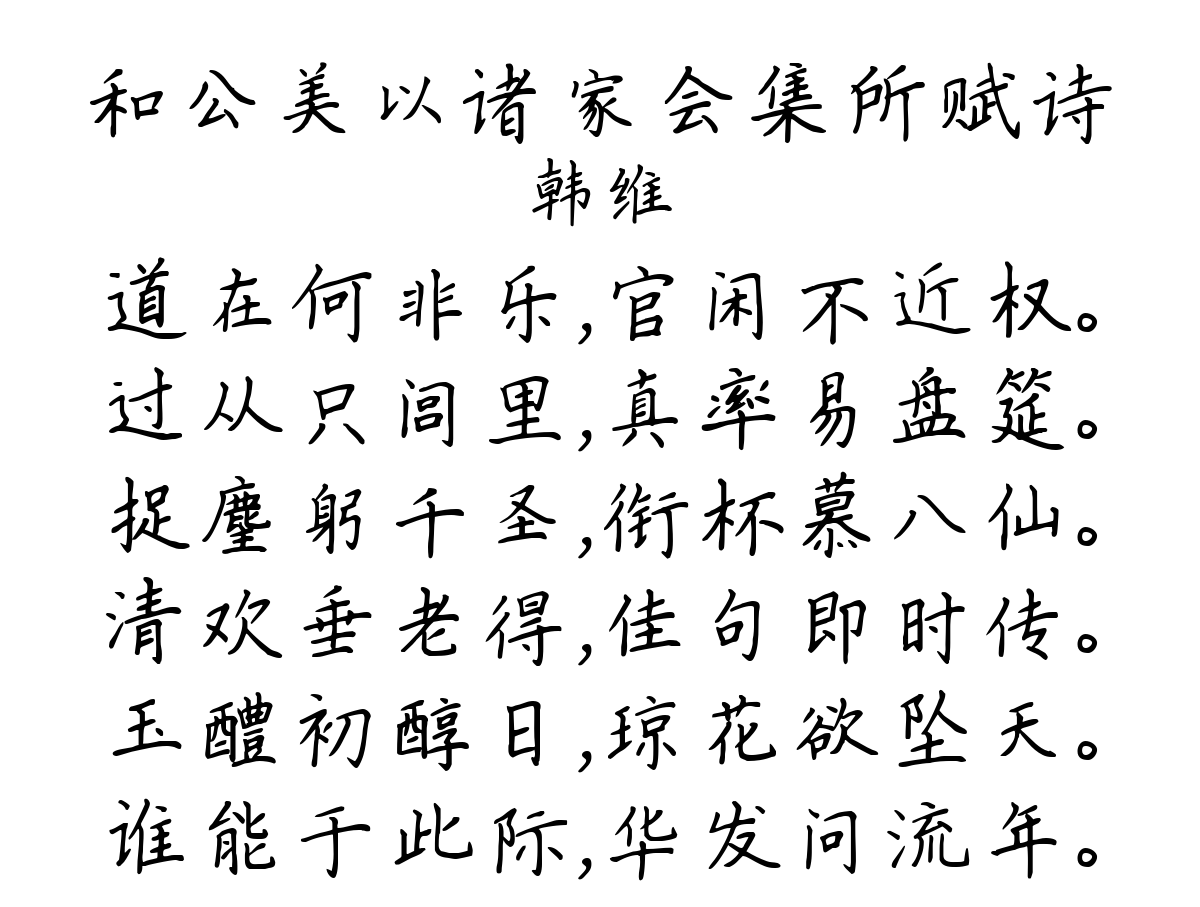 和公美以诸家会集所赋诗
韩维
道在何非乐,官闲不近权。
过从只闾里,真率易盘筵。
捉麈躬千圣,衔杯慕八仙。
清欢垂老得,佳句即时传。
玉醴初醇日,琼花欲坠天。
谁能于此际,华发问流年。